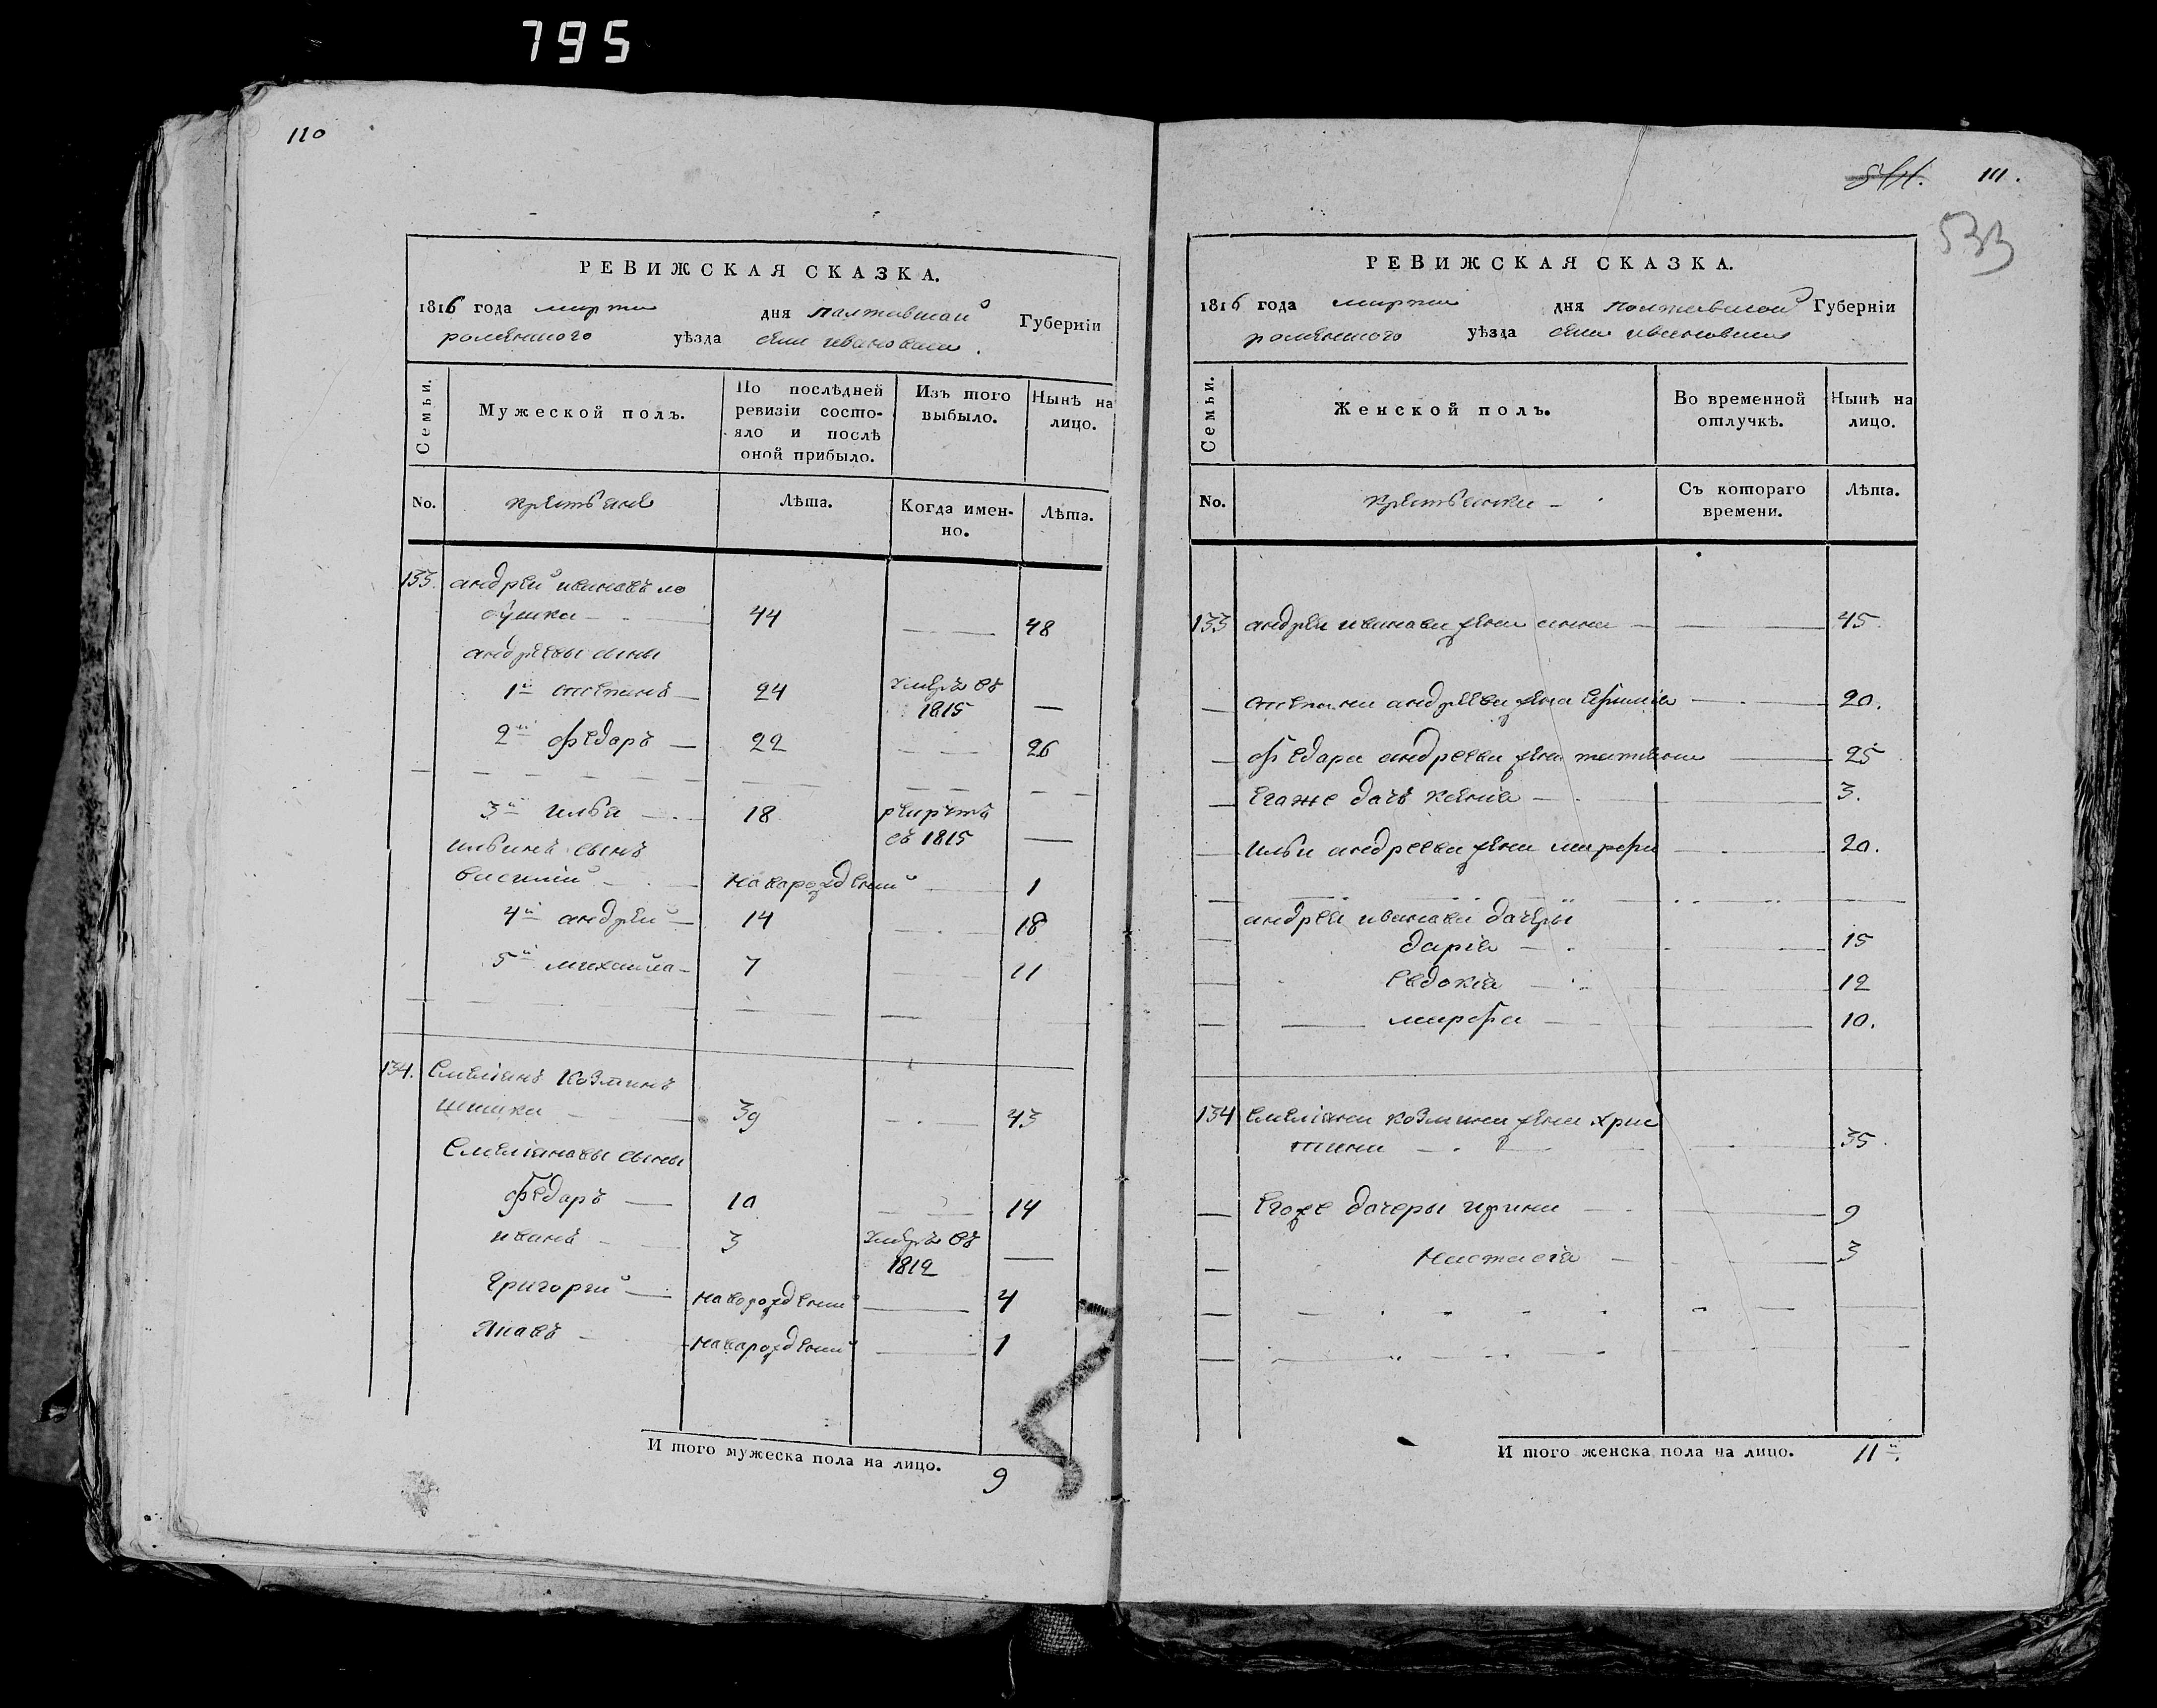 795
110
РЕВИЖСКАЯ СКАЗКА.
1816 года марта дня полтавской Губерніи
роменского уѣзда села ивановки.
Семьи.
Мужеской полъ.
По послѣдней ревизіи состояло и послѣ оной прибыло.
Изъ того выбыло.
Нынѣ на лицо.
No. крестьяне Лѣта. Когда именно. Лѣта.
133. андрей ивановъ ло
бушка 44 48
андреевы сыны
1й степанъ 24 умеръ въ 1815 —
2й федоръ 22 26
3й илья 18 рекрутъ въ 1815 —
ильинъ сынъ
василий новорожденый 1
4й андрей 14 18
5й михайла 7 11
134. Емеліянъ Козминъ
39 43
Емеліяновы сыны
федоръ 10 14
иванъ 3 умеръ въ 1812 —
Григорий новорожденый 4
Яковъ новорожденый 1
И того мужеска пола на лицо. 9
111.
533
РЕВИЖСКАЯ СКАЗКА.
1816 года марта дня полтавской Губерніи
роменского уѣзда села ивановки
Семьи.
Женской полъ.
Во временной отлучкѣ.
Нынѣ на лицо.
No. крестьянки Съ котораго времени. Лѣта.
133 андрея иванова жена анна 45
степана андреева жена Ефимия 20.
федора андреева жена татияна 25
Егоже дочь ксения 3.
ильи андреева жена марфа 20.
андрея иванова дочеры
дария 15
Евдокия 12
марфа 10.
134 Емеліяна козмина жена хрис
тина 35.
Егоже дочеры ирина 9
настасія 3
И того женска пола на лицо. 11й.